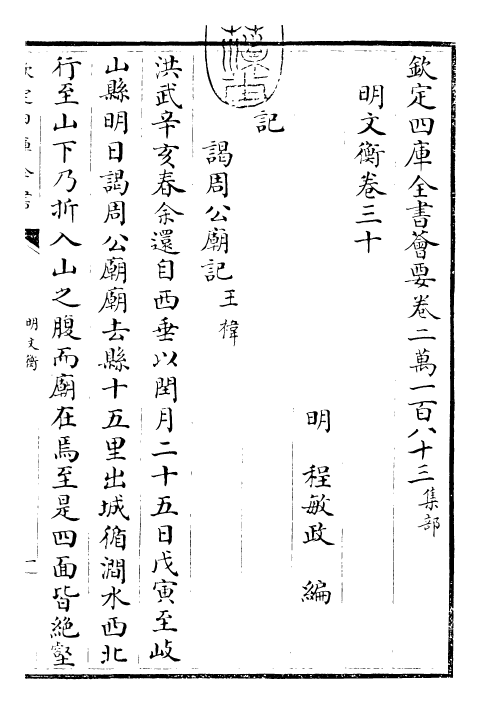 欽定四庫全書薈要卷二萬一百八十三集部
明文衡卷三十
明 程敏政 編
記
謁周公廟記王褘
洪武辛亥春余還自西垂以閏月二十五日戊寅至岐
山縣明日謁周公廟廟去縣十五里出城循澗水西北
行至山下乃折入山之腹而廟在焉至是四面皆絶壑
欽定四庫全書
明文衡
一